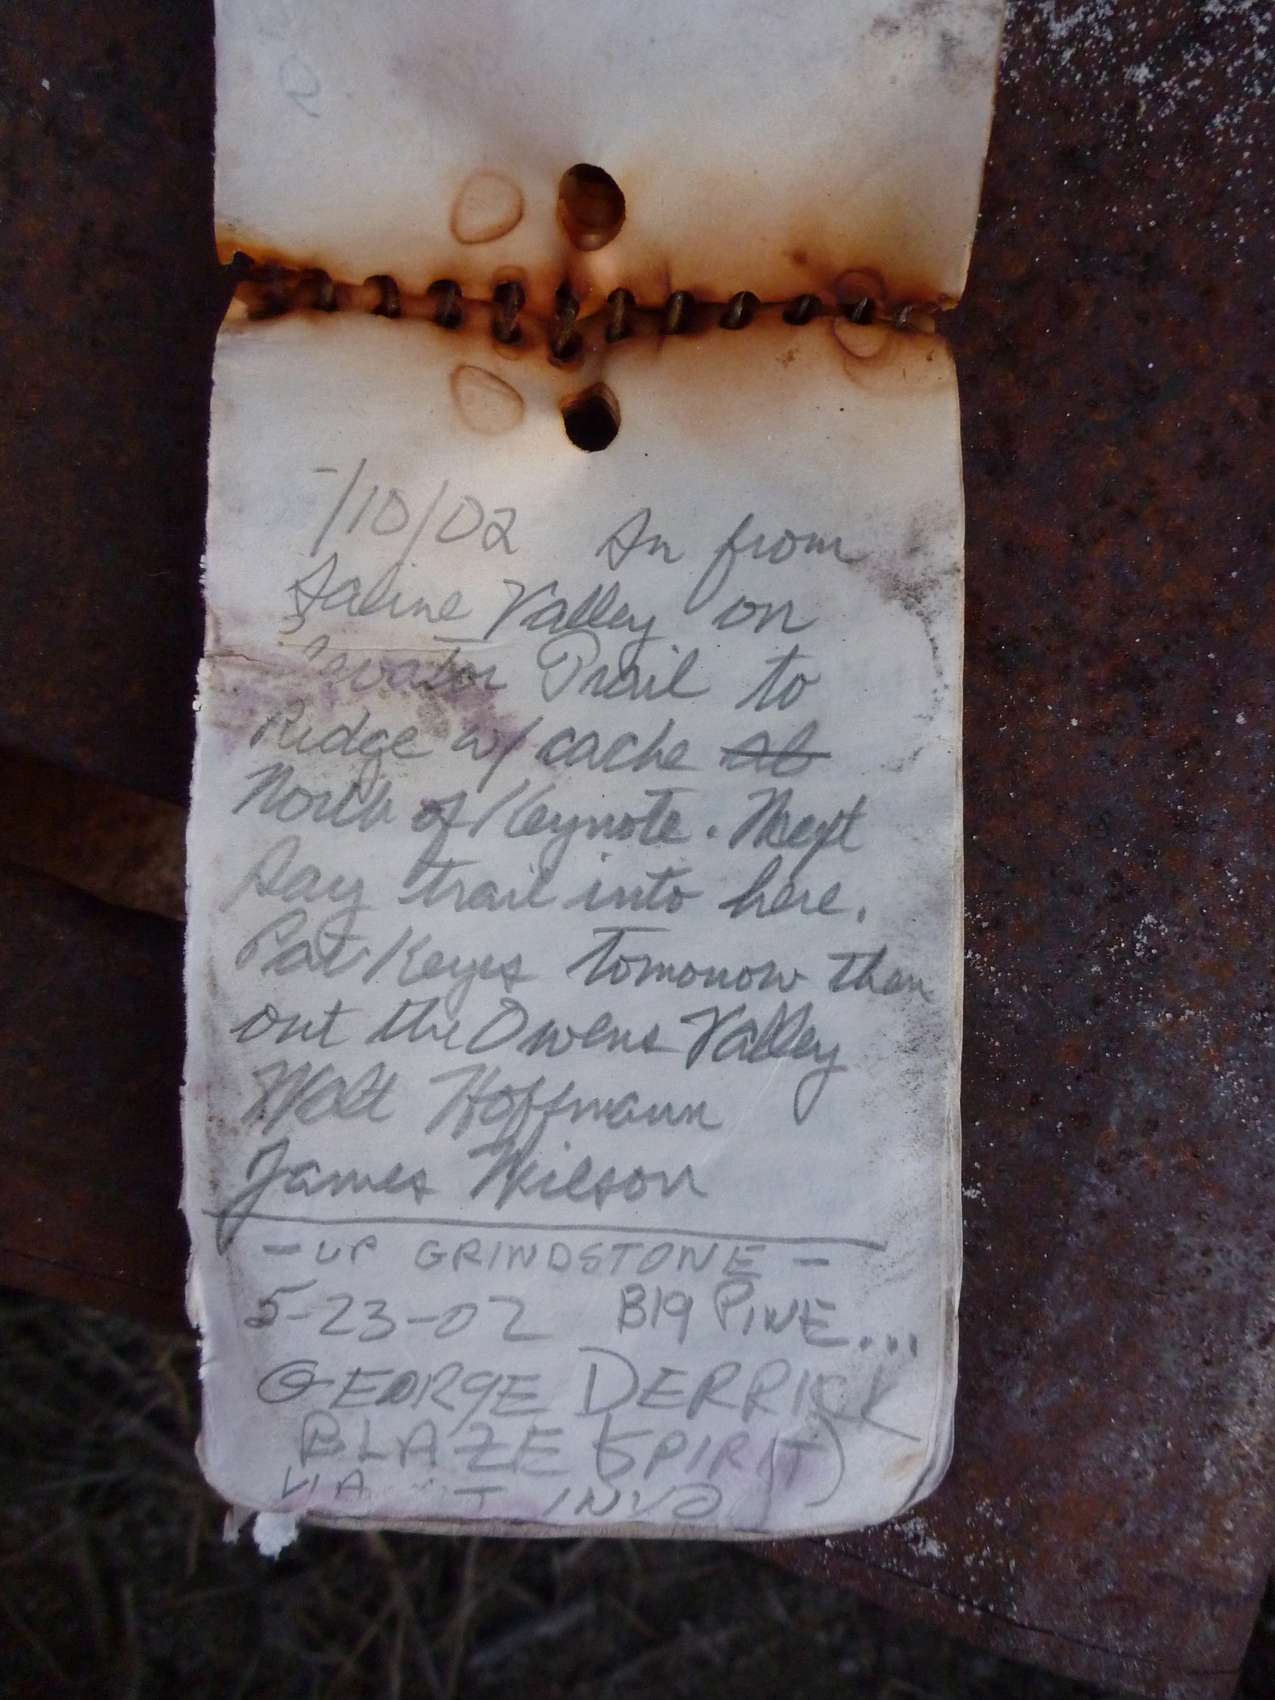 /10/02 In from
Saline Valley on
Trail to
Ridge w/ cache at
North of Keynote. Next
day trail into here.
Pat Keyes tomorrow then
out the Owens Valley
Walt Hoffmann
James Wilson
- UP GRINDSTONE -
5-23-02 BIG PINE...
GEORGE DERRICK
BLAZE (SPIRIT)
VIA INYO